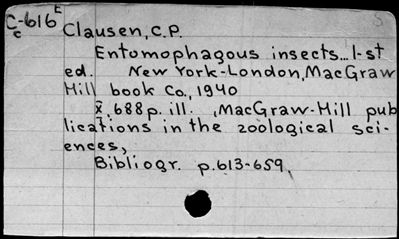 C-616 E
c
Clausen, C.P.
Entomophagous insects... 1-st
ed. New York-London, MacGraw
Hill book Co., 1940
X, 688 p. ill. , MacGraw-Hill pub
lications in the zoological sci-
ences,
Bibliogr. p. 613-659,